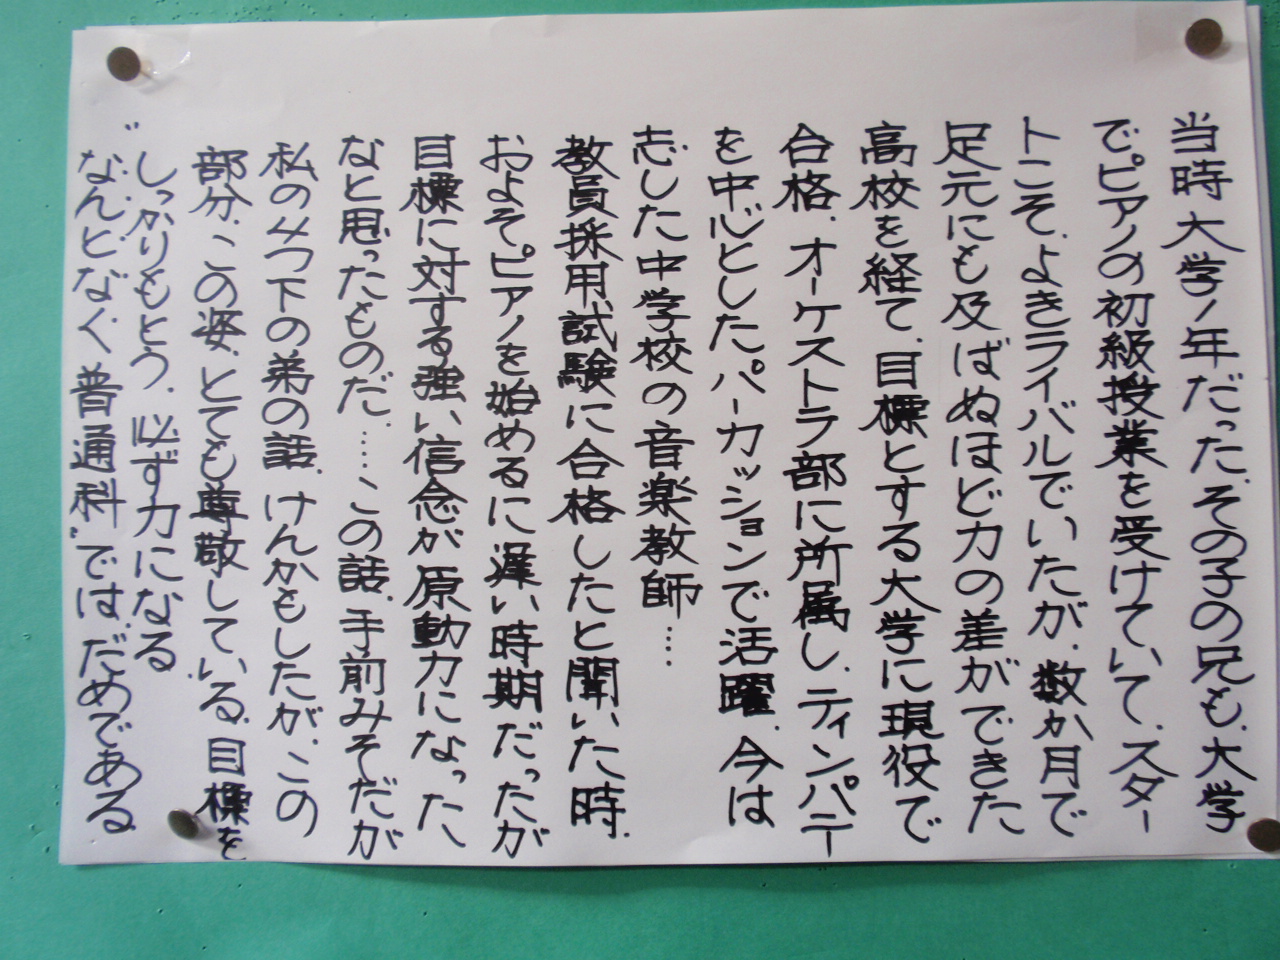 当時大学1年だった.その子の兄も、大学
でピアノの初級授業を受けていて、スター
トこそ、よきライバルでいたが、数か月で
足元にも及ばぬほど力の差ができた
高校を経て、目標とする大学に現役で
合格、オーケストラ部に所属し、ティンパテー
を中心としたパーカッションで活躍、今は
志した中学校の音楽教師……
教員採用試験に合格したと聞いた時、
およそピアノを始めるに遅い時期だったが
目標に対する強い信念が原動力になった、
なと思ったものだ、……この話、手前みそだが
私の4つ下の弟の話、けんかもしたが、この
部分、この姿、とても尊敬している、目標を
しっかりもとう、必ず力になる
“なんとなく、普通科”では、だめである